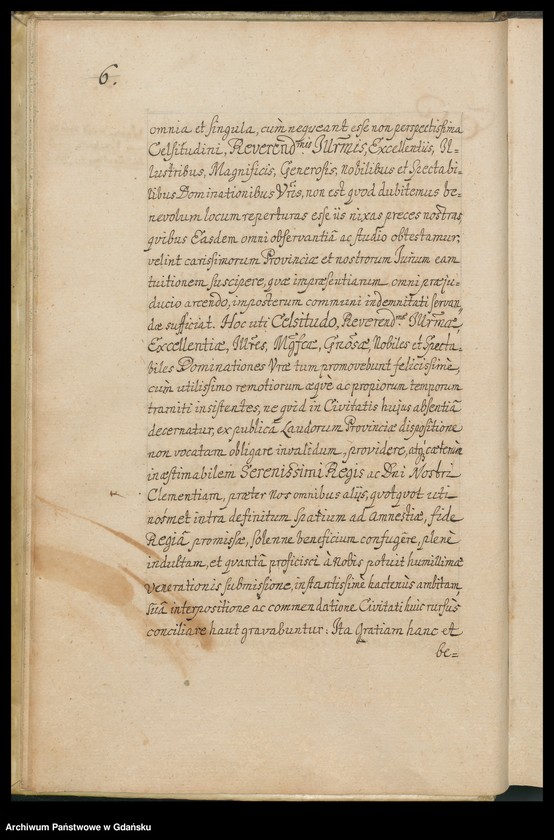 6.
omnia et singula, cùm nequeant esse non perspectissima
Celsitudini, Reverend:mis Illr̃mis, Excellentiis, Il=
lustribus, Magnificis, Generosis, Nobilibus et Spectabi=
libus Dominationibus Vr̃is, non est qvod dubitemus be=
nevolum locum reperturas esse iis nixas preces nostras
qvibus Easdem omni observantiâ ac studio obtestamur,
velint carissimorum Provinciæ et nostrorum Jurium eam
tuitionem suscipere, qvæ impræsentiarum omni præju=
ducio arcendo, imposterum communi indemnitati servan
dæ sufficiat. Hoc uti Celsitudo, Reverend:mæ Illr̃mæ
Excellentiæ, Illr̃es, Mg̃fcæ, Gnõsæ, Nobiles et Specta=
biles Dominationes Vræ tum promovebunt felicissimè,
cùm utilissimo remotiorum æqvè ac propiorum temporum
tramiti insistentes, ne qvid in Civitatis hujus absentiâ
decernatur, ex publicâ Laudorum Provinciæ dispositione
non vocatam obligare invalidum, providere, atq; cæterùm
inæstimabilem Serenissimi Regis ac Dni Nostri
Clementiam, præter nos omnibus aliis, qvotqvot uti
nosmet intra definitum Spatium ad Amnestiæ, fide
Regiâ promissæ, solenne beneficium confugêre, plenè
indultam, et qvantâ proficisci à Nobis potuit humillimæ
venerationis submissione, instantissimè hactenus ambitam,
suâ interpositione ac commendatione Civitati huic rursùs
conciliare haut gravabuntur: Ita Gratiam hanc et
be=
Archiwum Państwowe w Gdańsku